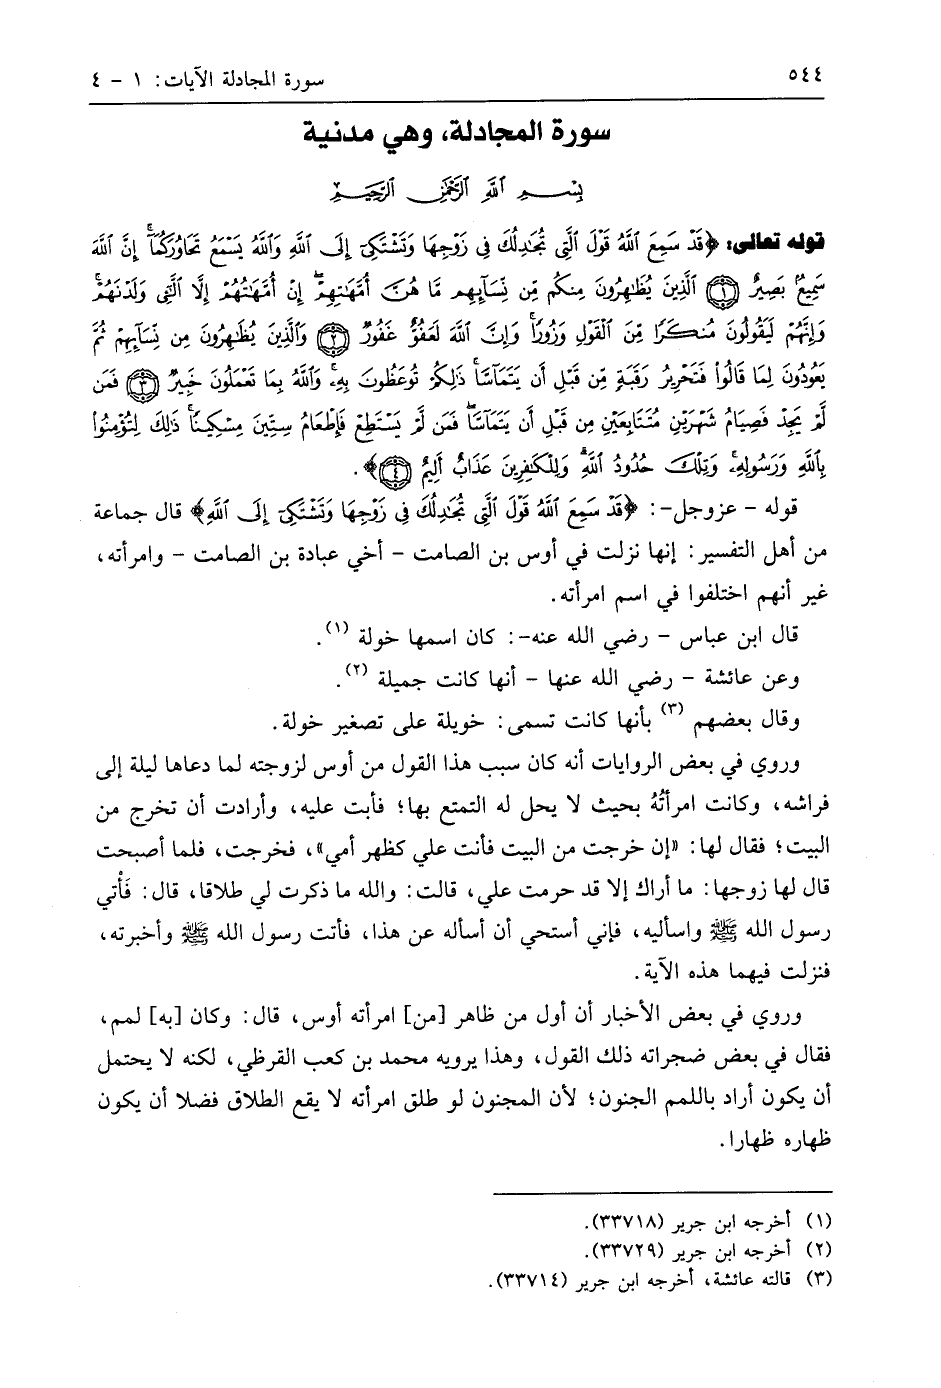 ٥٤٤
سورة المجادلة الآيات: ١ - ٤
سورة المجادلة، وهي مدنية
بِسْمِ اللَّهِ الرَّحْمَٰنِ الرَّحِيمِ
قوله تعالى: ﴿قَدْ سَمِعَ اللَّهُ قَوْلَ الَّتِي تُجَادِلُكَ فِي زَوْجِهَا وَتَشْتَكِي إِلَى اللَّهِ وَاللَّهُ يَسْمَعُ تَحَاوُرَكُمَا إِنَّ اللَّهَ
سَمِيعٌ بَصِيرٌ ﴿١﴾ الَّذِينَ يُظَاهِرُونَ مِنكُم مِّن نِّسَائِهِم مَّا هُنَّ أُمَّهَاتِهِمْ إِنْ أُمَّهَاتُهُمْ إِلَّا اللَّائِي وَلَدْنَهُمْ
وَإِنَّهُمْ لَيَقُولُونَ مُنكَرًا مِّنَ الْقَوْلِ وَزُورًا وَإِنَّ اللَّهَ لَعَفُوٌّ غَفُورٌ ﴿٢﴾ وَالَّذِينَ يُظَاهِرُونَ مِن نِّسَائِهِمْ ثُمَّ
يَعُودُونَ لِمَا قَالُوا فَتَحْرِيرُ رَقَبَةٍ مِّن قَبْلِ أَن يَتَمَاسَّا ذَٰلِكُمْ تُوعَظُونَ بِهِ وَاللَّهُ بِمَا تَعْمَلُونَ خَبِيرٌ ﴿٣﴾ فَمَن
لَّمْ يَجِدْ فَصِيَامُ شَهْرَيْنِ مُتَتَابِعَيْنِ مِن قَبْلِ أَن يَتَمَاسَّا فَمَن لَّمْ يَسْتَطِعْ فَإِطْعَامُ سِتِّينَ مِسْكِينًا ذَٰلِكَ لِتُؤْمِنُوا
بِاللَّهِ وَرَسُولِهِ وَتِلْكَ حُدُودُ اللَّهِ وَلِلْكَافِرِينَ عَذَابٌ أَلِيمٌ ﴿٤﴾﴾.
قوله - عزوجل -: ﴿قَدْ سَمِعَ اللَّهُ قَوْلَ الَّتِي تُجَادِلُكَ فِي زَوْجِهَا وَتَشْتَكِي إِلَى اللَّهِ﴾ قال جماعة
من أهل التفسير: إنها نزلت في أوس بن الصامت - أخي عبادة بن الصامت - وامرأته،
غير أنهم اختلفوا في اسم امرأته.
قال ابن عباس - رضي الله عنه-: كان اسمها خولة (١).
وعن عائشة - رضي الله عنها - أنها كانت جميلة (٢).
وقال بعضهم (٣) بأنها كانت تسمى: خويلة على تصغير خولة.
وروي في بعض الروايات أنه كان سبب هذا القول من أوس لزوجته لما دعاها ليلة إلى
فراشه، وكانت امرأتُهُ بحيث لا يحل له التمتع بها؛ فأبت عليه، وأرادت أن تخرج من
البيت؛ فقال لها: «إن خرجت من البيت فأنت علي كظهر أمي»، فخرجت، فلما أصبحت
قال لها زوجها: ما أراك إلا قد حرمت علي، قالت: والله ما ذكرت لي طلاقا، قال: فَأْتي
رسول الله ﷺ واسأليه، فإني أستحي أن أسأله عن هذا، فأتت رسول الله ﷺ وأخبرته،
فنزلت فيهما هذه الآية.
وروي في بعض الأخبار أن أول من ظاهر [من] امرأته أوس، قال: وكان [به] لمم،
فقال في بعض ضجراته ذلك القول، وهذا يرويه محمد بن كعب القرظي، لكنه لا يحتمل
أن يكون أراد باللمم الجنون؛ لأن المجنون لو طلق امرأته لا يقع الطلاق فضلا أن يكون
ظهاره ظهارا.
(١) أخرجه ابن جرير (٣٣٧١٨).
(٢) أخرجه ابن جرير (٣٣٧٢٩).
(٣) قالته عائشة، أخرجه ابن جرير (٣٣٧١٤).